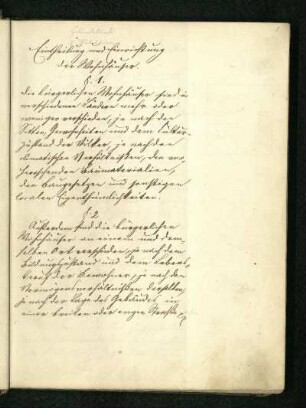 Eintheilung und Einrichtung
der Wohnhäuser.
§. 1.
Die bürgerlichen Wohnhäuser sind in
verschiedenen Ländern mehr oder
weniger verschieden, je nach den
Sitten, Gewohnheiten und dem Cultur-
zustand der Völker, je nach den
climatischen Verhältnissen, den vor-
herrschenden Baumaterialien,
den Baugesetzen und sonstigen
localen Eigenthümlichkeiten.
§ 2.
Außerdem sind die bürgerlichen
Wohnhäuser an einem und dem-
selben Ort verschieden, je nach dem
Bildungszustand und dem Lebens-
beruf der Bewohner, je nach den
Vermögensverhältnissen derselben,
je nach der Lage des Gebäudes, in
einer breiten oder engen Straße,